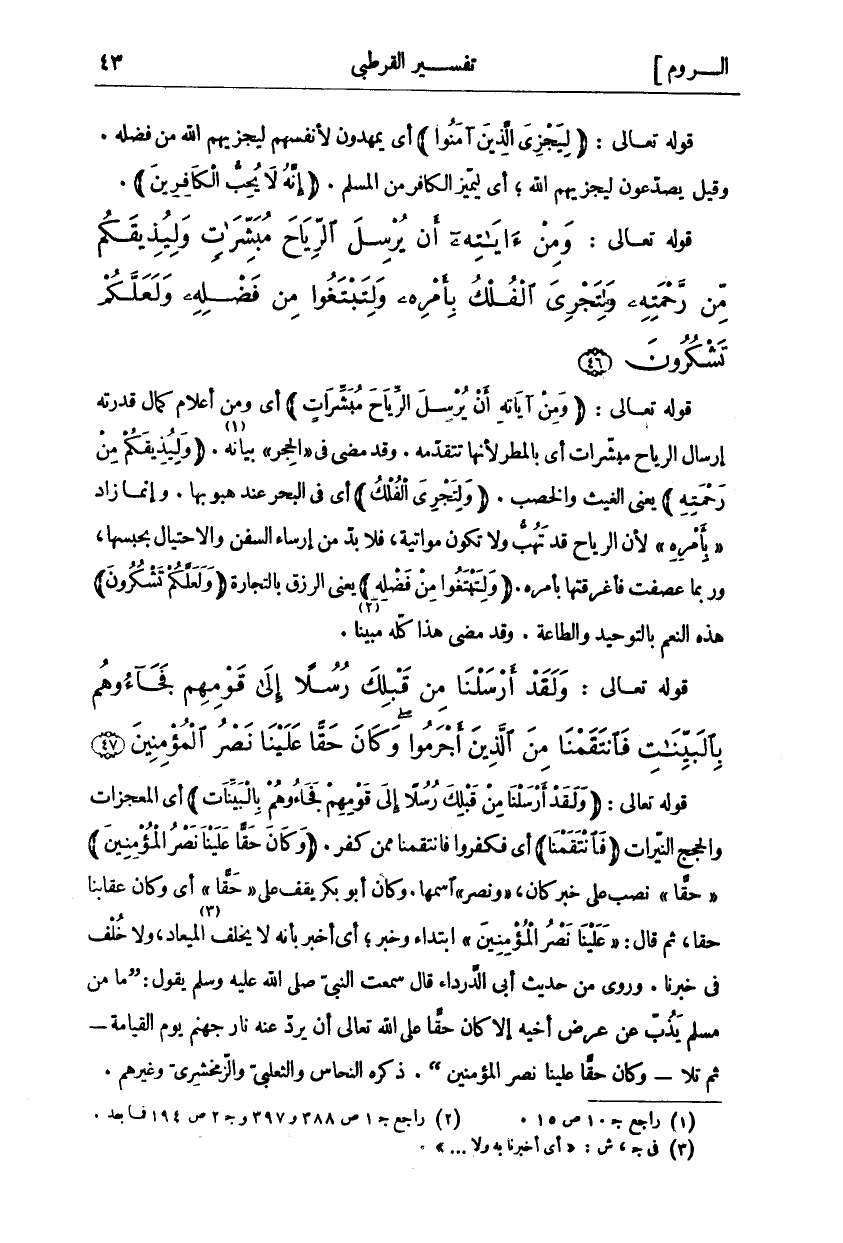 الـــروم ] تفســـير القرطبى ٤٣
قوله تعـالى : ﴿ لِيَجْزِىَ الَّذِينَ آمَنُوا ﴾ أى يمهدون لأنفسهم ليجزيهم الله من فضله .
وقيل يصدّعون ليجزيهم الله ؛ أى ليتميّز الكافر من المسلم . ﴿ إِنَّهُ لَا يُحِبُّ الْكَافِرِينَ ﴾ .
قوله تعـالى : وَمِنْ ءَايَـٰتِهِۦٓ أَن يُرْسِلَ ٱلرِّيَاحَ مُبَشِّرَٰتٍ وَلِيُذِيقَكُم
مِّن رَّحْمَتِهِۦ وَلِتَجْرِىَ ٱلْفُلْكُ بِأَمْرِهِۦ وَلِتَبْتَغُوا مِن فَضْلِهِۦ وَلَعَلَّكُمْ
تَشْكُرُونَ ﴿٤٦﴾
قوله تعـالى : ﴿ وَمِنْ آيَاتِهِ أَنْ يُرْسِلَ الرِّيَاحَ مُبَشِّرَاتٍ ﴾ أى ومن أعلام كمال قدرته
إرسال الرياح مبشّرات أى بالمطر لأنها تتقدّمه . وقد مضى فى «الحِجر» بيانه (١) . ﴿ وَلِيُذِيقَكُمْ مِنْ
رَحْمَتِهِ ﴾ يعنى الغيث والخصب . ﴿ وَلِتَجْرِىَ الْفُلْكُ ﴾ أى فى البحر عند هبوبها . وإنمـا زاد
« بِأَمْرِهِ » لأن الرياح قد تَهُبُّ ولا تكون مواتية، فلا بدّ من إرساء السفن والاحتيال بحبسها،
وربما عصفت فأغرقتها بأمره . ﴿ وَلِتَبْتَغُوا مِنْ فَضْلِهِ ﴾ يعنى الرزق بالتجارة ﴿ وَلَعَلَّكُمْ تَشْكُرُونَ ﴾
هذه النعم بالتوحيد والطاعة . وقد مضى هذا كلّه مبينا (٢) .
قوله تعـالى : وَلَقَدْ أَرْسَلْنَا مِن قَبْلِكَ رُسُلًا إِلَىٰ قَوْمِهِم فَجَآءُوهُم
بِٱلْبَيِّنَـٰتِ فَٱنتَقَمْنَا مِنَ ٱلَّذِينَ أَجْرَمُوا ۖ وَكَانَ حَقًّا عَلَيْنَا نَصْرُ ٱلْمُؤْمِنِينَ ﴿٤٧﴾
قوله تعالى : ﴿ وَلَقَدْ أَرْسَلْنَا مِنْ قَبْلِكَ رُسُلًا إِلَى قَوْمِهِمْ فَجَاءُوهُمْ بِالْبَيِّنَاتِ ﴾ أى المعجزات
والحجج النيّرات ﴿ فَٱنْتَقَمْنَا ﴾ أى فكفروا فانتقمنا ممن كفر . ﴿ وَكَانَ حَقًّا عَلَيْنَا نَصْرُ الْمُؤْمِنِينَ ﴾
« حقًّا » نصب على خبر كان، «ونصر» ٱسمها . وكان أبو بكر يقف على « حَقًّا » أى وكان عقابنا
حقا، ثم قال: « عَلَيْنَا نَصْرُ الْمُؤْمِنِينَ » ابتداء وخبر ؛ أى أخبر بأنه لا يخلف (٣) الميعاد، ولا خُلْف
فى خبرنا . وروى من حديث أبى الدَّرداء قال سمعت النبىّ صلى الله عليه وسلم يقول : ”ما من
مسلم يَذُبّ عن عرض أخيه إلا كان حقًّا على الله تعالى أن يردّ عنه نار جهنم يوم القيامة ــ
ثم تلا ــ وكان حقًّا علينا نصر المؤمنين “ . ذكره النحاس والثعلبىّ والزّمخشرىّ وغيرهم .
(١) راجع جـ ١٠ ص ١٥ . (٢) راجع جـ ١ ص ٣٨٨ و ٣٩٧ و جـ ٢ ص ١٩٤ فمـا بعد .
(٣) فى جـ ، ش : « أى أخبرنا به ولا ... » .